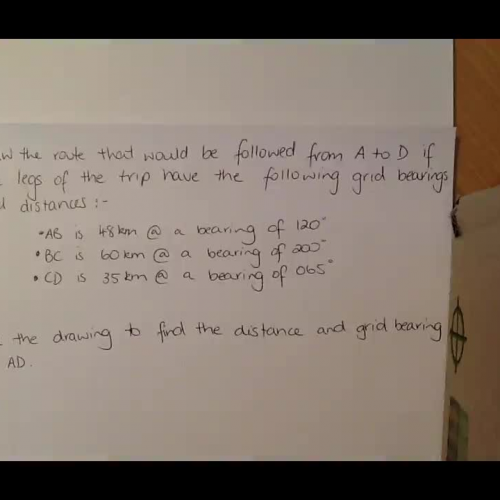 the route that would be followed from A to D if
legs of the trip have the following grid bearings
distances :-
• AB is 48 km @ a bearing of 120°
• BC is 60 km @ a bearing of 200°
• CD is 35 km @ a bearing of 065°
the drawing to find the distance and grid bearing
AD.